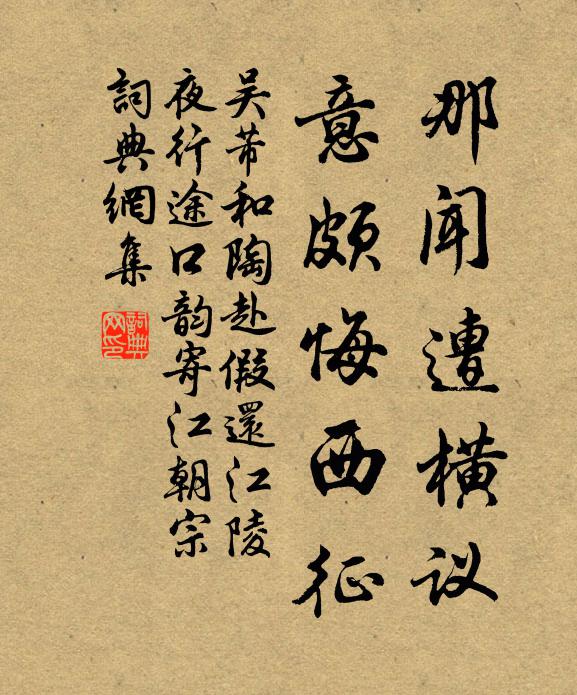 那闻遭横议
意颇悔西征
吴芾和陶赴假還江陵
夜行途口韵寄江朝宗
詞典網集
詞典网印